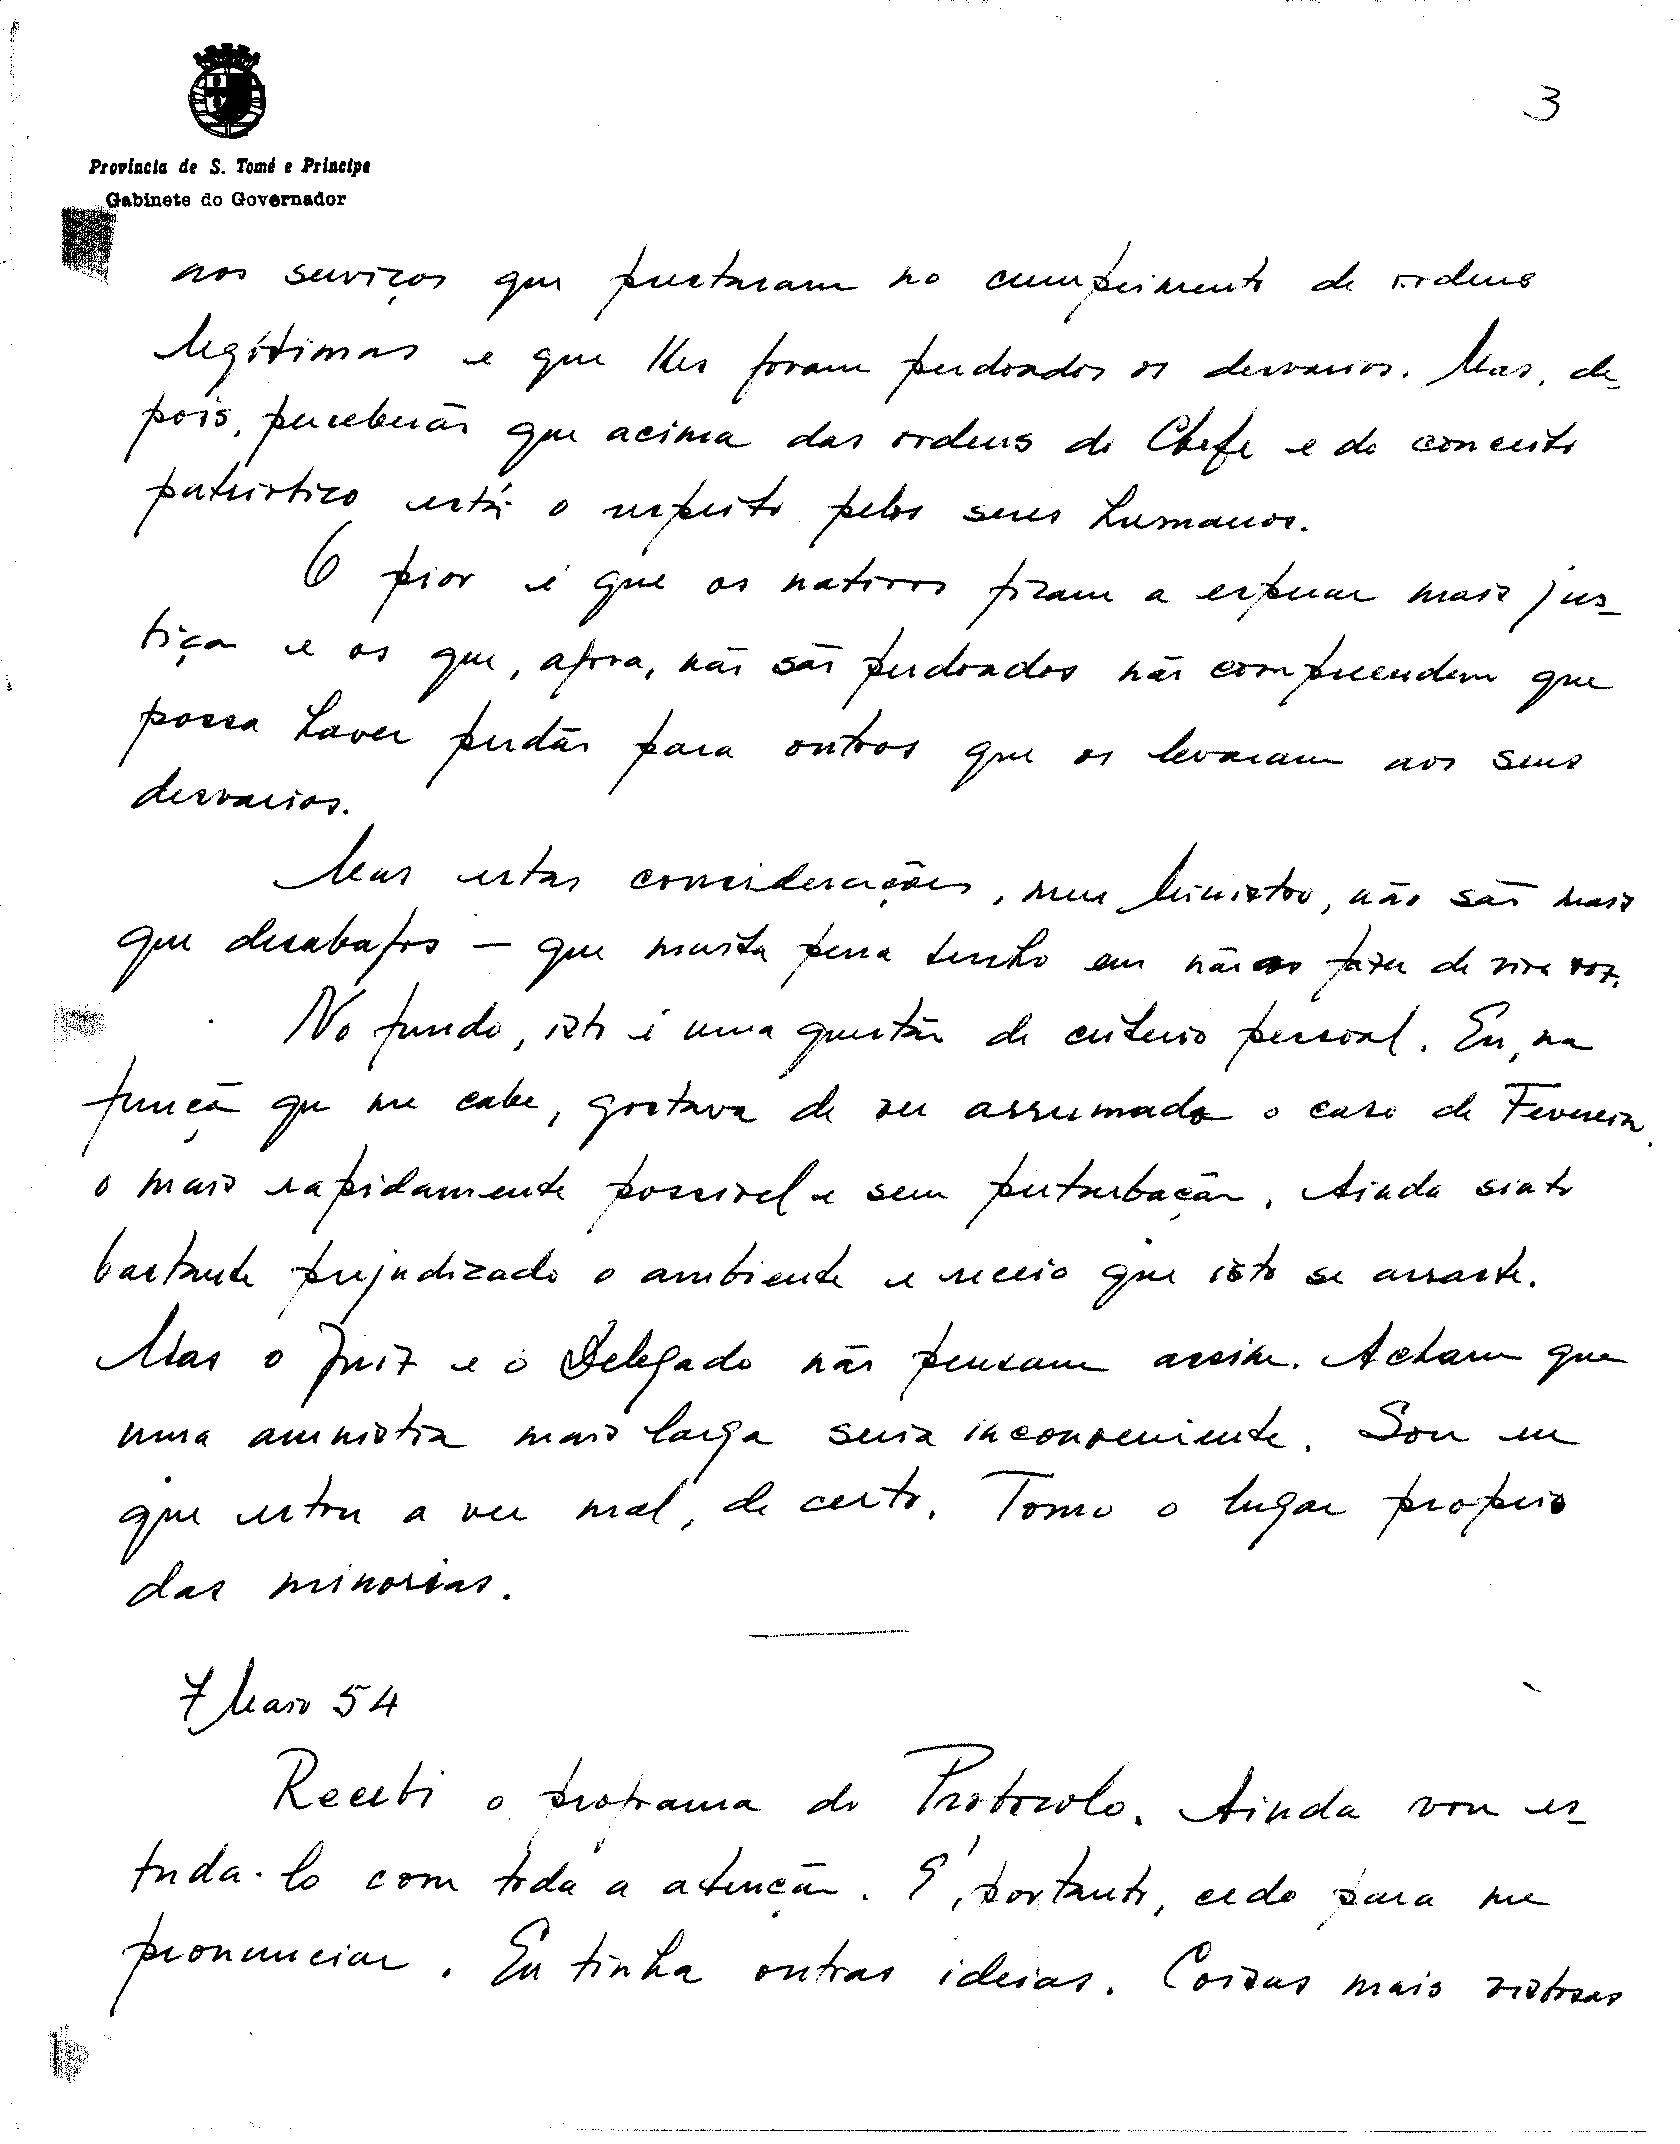 3
Província de S. Tomé e Príncipe
Gabinete do Governador
aos serviços que prestaram no cumprimento de ordens
legítimas e que lhes foram perdoados os desvarios. Mas, de-
pois, perceberão que acima das ordens do Chefe e do conceito
patriótico está o respeito pelos seres humanos.
O pior é que os nativos ficam a esperar mais jus-
tiça e os que, agora, não são perdoados não compreendem que
possa haver perdão para outros que os levaram aos seus
desvarios.
Mas estas considerações, meu Ministro, não são mais
que desabafos — que muita pena tenho em não os fazer de viva voz.
No fundo, isto é uma questão de critério pessoal. Eu, na
função que me cabe, gostava de ver arrumado o caso de Fevereiro,
o mais rapidamente possivel e sem perturbação. Ainda sinto
bastante prejudicado o ambiente e receio que isto se arraste.
Mas o Juiz e o Delegado não pensam assim. Acham que
uma amnistia mais larga seria inconveniente. Sou eu
que estou a ver mal, de certo. Tomo o lugar proprio
das minorias.
7 Maio 54
Recebi o programa do Protocolo. Ainda vou es-
tuda-lo com toda a atenção. É, portanto, cedo para me
pronunciar. Eu tinha outras ideias. Coisas mais vistosas